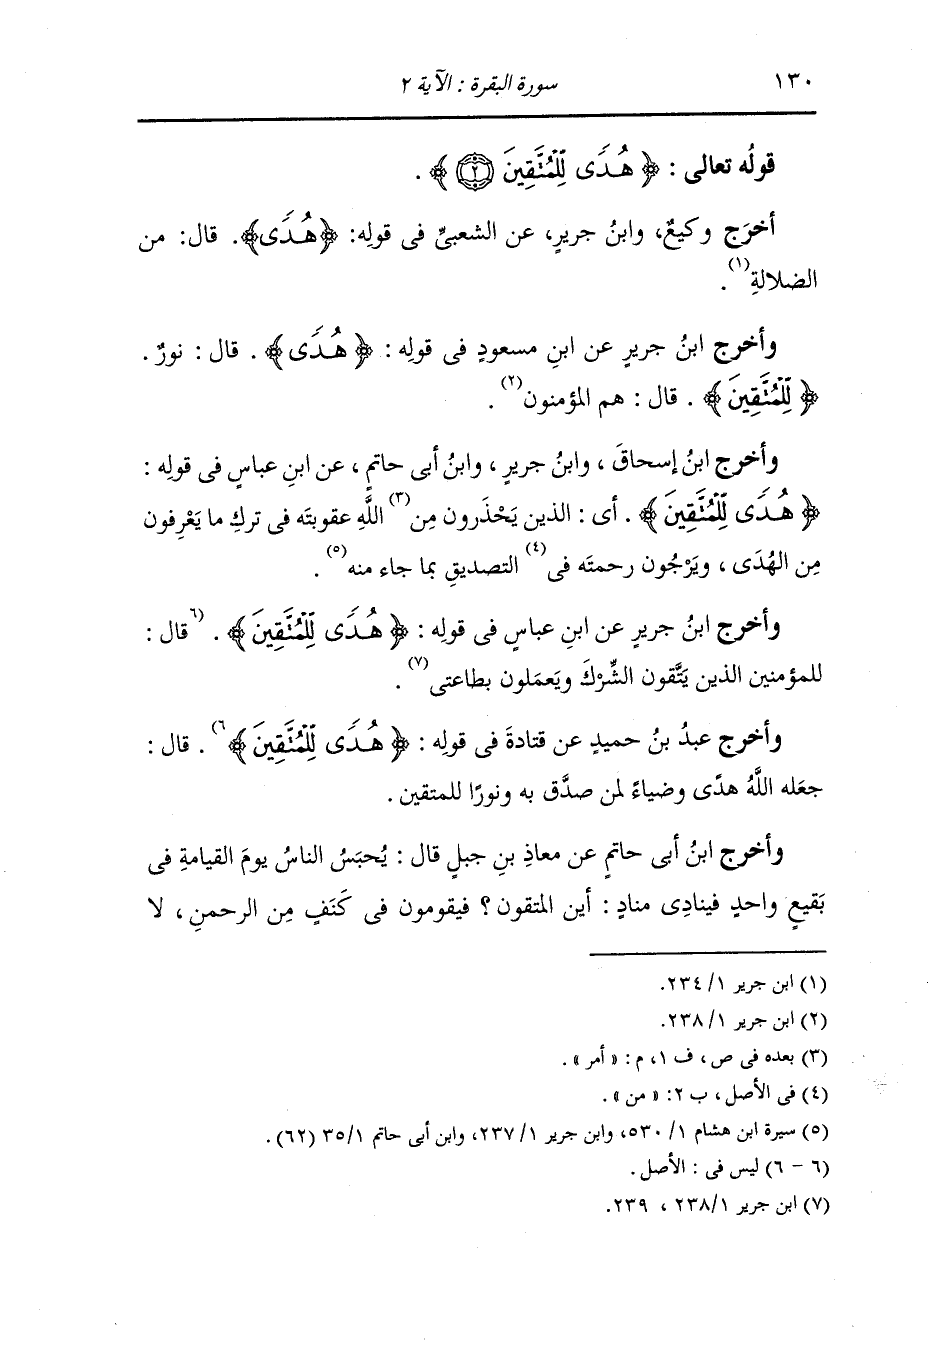 ١٣٠ سورة البقرة : الآية ٢
قولُه تعالى : ﴿ هُدًى لِّلْمُتَّقِينَ ۝٢ ﴾ .
أخرَج وكيعٌ، وابنُ جريرٍ، عن الشعبيِّ فى قولِه: ﴿هُدًى﴾. قال: من
الضلالةِ(١) .
وأخرج ابنُ جريرٍ عن ابنِ مسعودٍ فى قولِه : ﴿ هُدًى ﴾ . قال : نورٌ .
﴿ لِّلْمُتَّقِينَ ﴾ . قال : هم المؤمنون(٢) .
وأخرج ابنُ إسحاقَ ، وابنُ جريرٍ ، وابنُ أبى حاتمٍ ، عن ابنِ عباسٍ فى قولِه :
﴿ هُدًى لِّلْمُتَّقِينَ ﴾ . أى : الذين يَحْذَرون مِن(٣) اللَّهِ عقوبتَه فى تركِ ما يَعْرِفون
مِن الهُدَى ، ويَرْجُون رحمتَه فى(٤) التصديقِ بما جاء منه(٥) .
وأخرج ابنُ جريرٍ عن ابنِ عباسٍ فى قولِه : ﴿ هُدًى لِّلْمُتَّقِينَ ﴾ . (٦قال :
للمؤمنين الذين يَتَّقون الشِّرْكَ ويَعمَلون بطاعتى(٧) .
وأخرج عبدُ بنُ حميدٍ عن قتادةَ فى قولِه : ﴿ هُدًى لِّلْمُتَّقِينَ ﴾٦) . قال :
جعَله اللَّهُ هدًى وضياءً لمن صدَّق به ونورًا للمتقين .
وأخرج ابنُ أبى حاتمٍ عن معاذِ بنِ جبلٍ قال : يُحبَسُ الناسُ يومَ القيامةِ فى
بَقيعٍ واحدٍ فينادِى منادٍ : أين المتقون ؟ فيقومون فى كَنَفٍ مِن الرحمنِ ، لا
(١) ابن جرير ١/ ٢٣٤.
(٢) ابن جرير ١/ ٢٣٨.
(٣) بعده فى ص ، ف ١، م : « أمر » .
(٤) فى الأصل ، ب ٢: « من » .
(٥) سيرة ابن هشام ١/ ٥٣٠، وابن جرير ١/ ٢٣٧، وابن أبى حاتم ٣٥/١ (٦٢) .
(٦ - ٦) ليس فى : الأصل .
(٧) ابن جرير ٢٣٨/١ ، ٢٣٩.